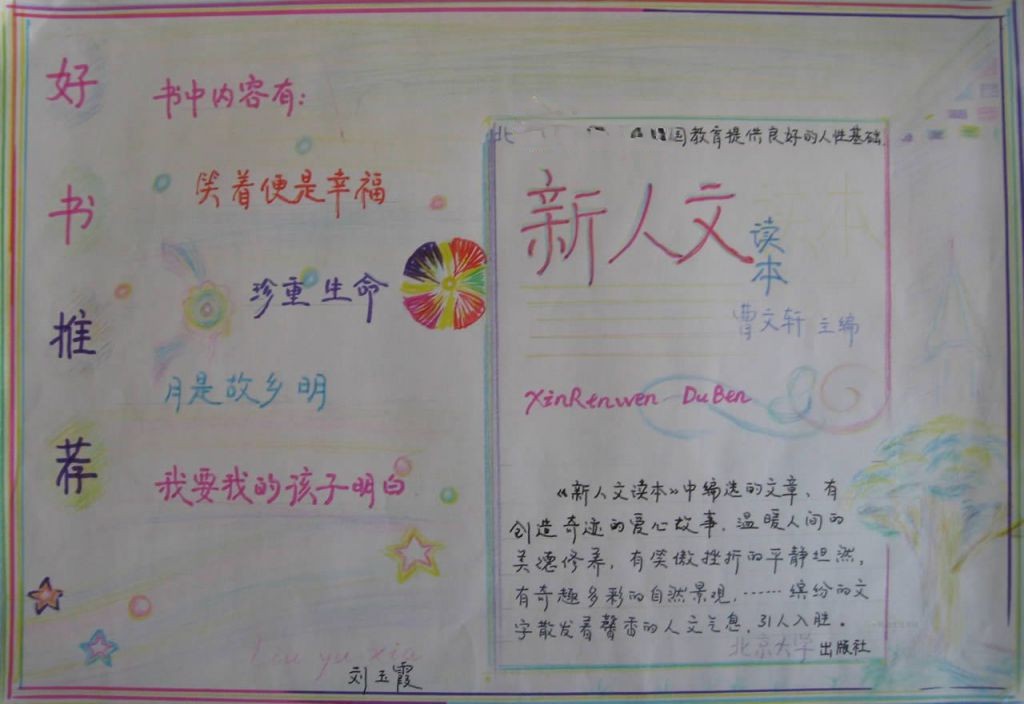 好书推荐
书中内容有：
笑着便是幸福
珍重生命
月是故乡明
我要我的孩子明白
Liu yu xia
刘玉霞
北
国教育提供良好的人性基础.
新人文
读本
曹文轩 主编
XinRenwen DuBen
《新人文读本》中编选的文章，有
创造奇迹的爱心故事，温暖人间的
美德修养，有笑傲挫折的平静坦然，
有奇趣多彩的自然景观，……缤纷的文
字散发着馨香的人文气息，引人入胜。
北京大学出版社